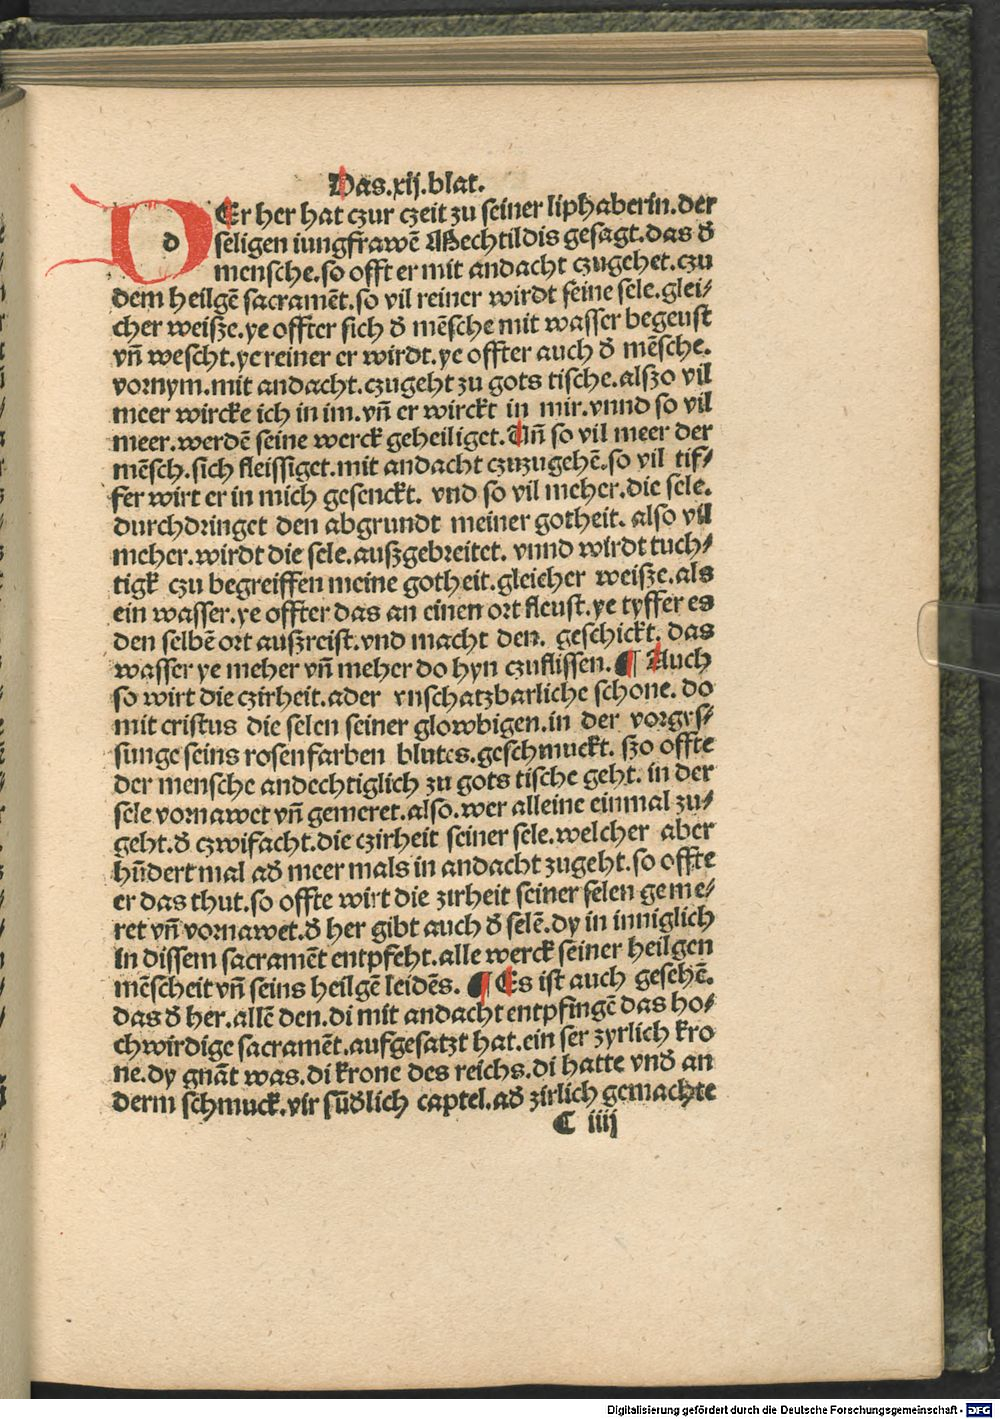 Das.xij.blat.
DEr her hat czur czeit zu seiner liphaberin.der
seligen iungfrawē Mechtildis gesagt.das d̄
mensche.so offt er mit andacht czugehet.czu
dem heilgē sacramēt.so vil reiner wirdt seine sele.glei⸗
cher weisze.ye offter sich d̄ mēsche mit wasser begeust
vn̄ wescht.ye reiner er wirdt.ye offter auch d̄ mēsche.
vornym.mit andacht.czugeht zu gots tische.alszo vil
meer wircke ich in im.vn̄ er wirckt in mir.vnnd so vil
meer.werdē seine werck geheiliget.Vn̄ so vil meer der
mēsch.sich fleissiget.mit andacht czuzugehē.so vil tif⸗
fer wirt er in mich gesenckt. vnd so vil meher.die sele.
durchdringet den abgrundt meiner gotheit. also vil
meher.wirdt die sele.auszgebreitet. vnnd wirdt tuch⸗
tigk czu begreiffen meine gotheit.gleicher weisze.als
ein wasser.ye offter das an einen ort fleust.ye tyffer es
den selbē ort auszreist.vnd macht den. geschickt. das
wasser ye meher vn̄ meher do hyn czuflissen. ¶ Auch
so wirt die czirheit.ader vnschatzbarliche schone. do
mit cristus die selen seiner glowbigen.in der vorgys⸗
sunge seins rosenfarben blutes.geschmuckt. szo offte
der mensche andechtiglich zu gots tische geht. in der
sele vornawet vn̄ gemeret.also.wer alleine einmal zu⸗
geht.d̄ czwifacht.die czirheit seiner sele.welcher aber
hūdert mal ad̄ meer mals in andacht zugeht.so offte
er das thut.so offte wirt die zirheit seiner selen geme⸗
ret vn̄ vornawet.d̄ her gibt auch d̄ selē.dy in inniglich
In dissem sacramēt entpfeht.alle werck seiner heilgen
mēscheit vn̄ seins heilgē leidēs. ¶ Es ist auch gesehē.
das d̄ her.allē den.di mit andacht entpfingē das ho⸗
chwirdige sacramēt.aufgesatzt hat.ein ser zyrlich kro
ne.dy gnāt was.di krone des reichs.di hatte vnd̄ an
derm schmuck.vir sūd̄lich captel.ad̄ zirlich gemachte
C iiij
Digitalisierung gefördert durch die Deutsche Forschungsgemeinschaft - DFG